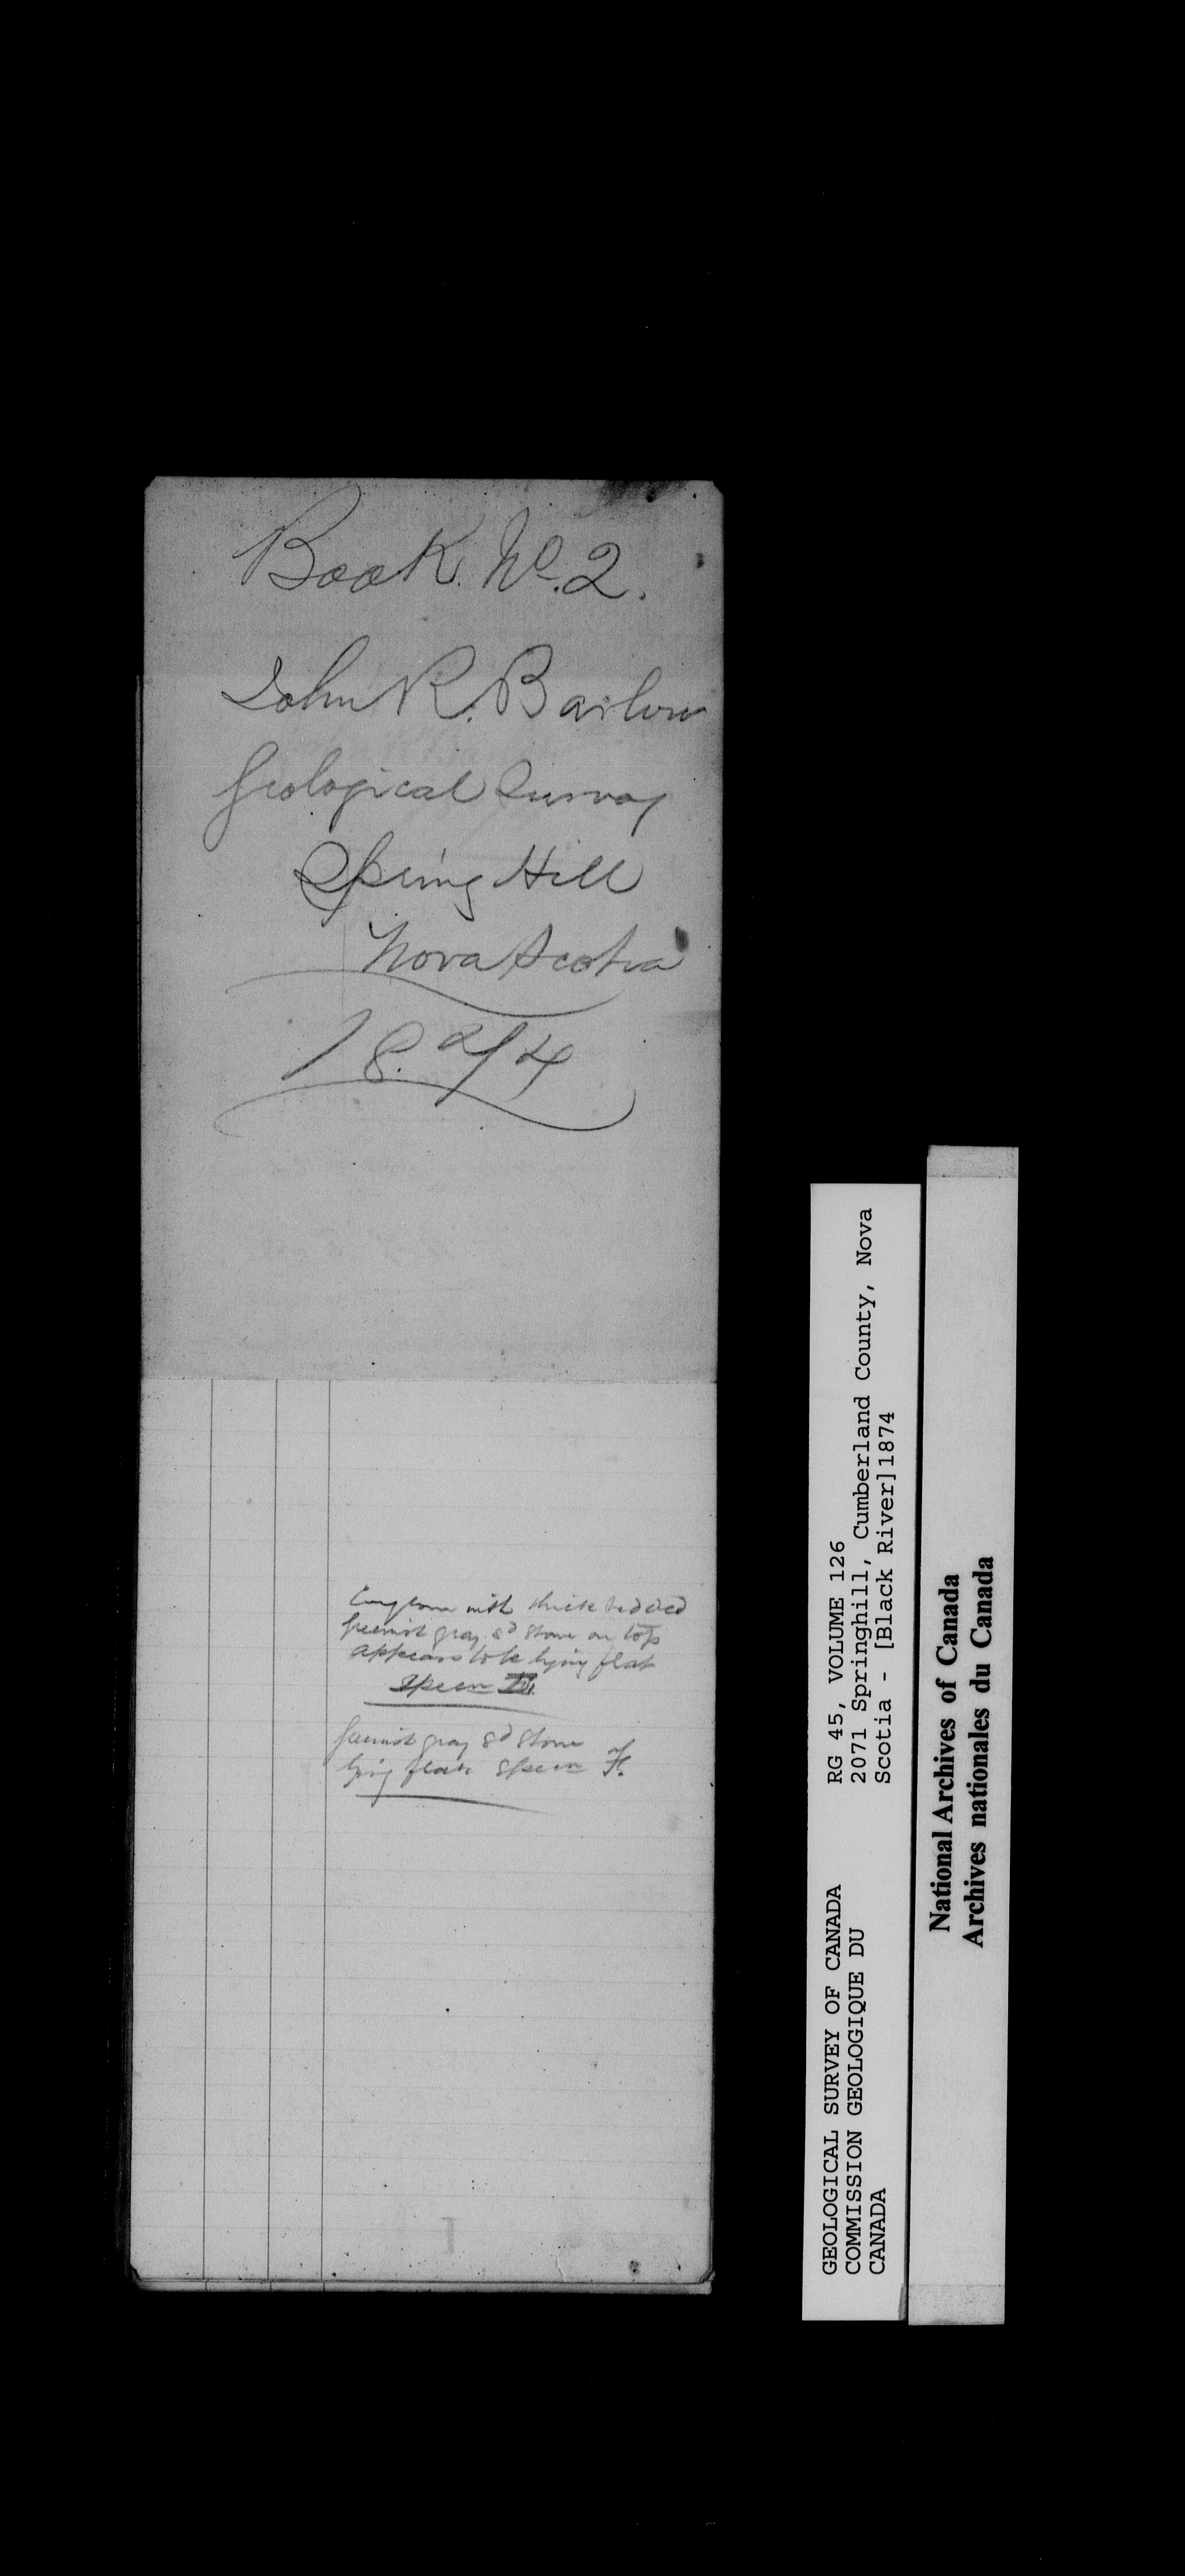 Book. No. 2.
John R. Barlow
Geological Survey
Spring Hill
Nova Scotia
18.74
with thick bedded
greenish gray sd stone on top
appears to be lying flat
Specm
greenish gray sd stone
lying flat Specm
RG 45, VOLUME 126
2071 Springhill, Cumberland County, Nova
Scotia - [Black River]1874
GEOLOGICAL SURVEY OF CANADA
COMMISSION GEOLOGIQUE DU
CANADA
National Archives of Canada
Archives nationales du Canada